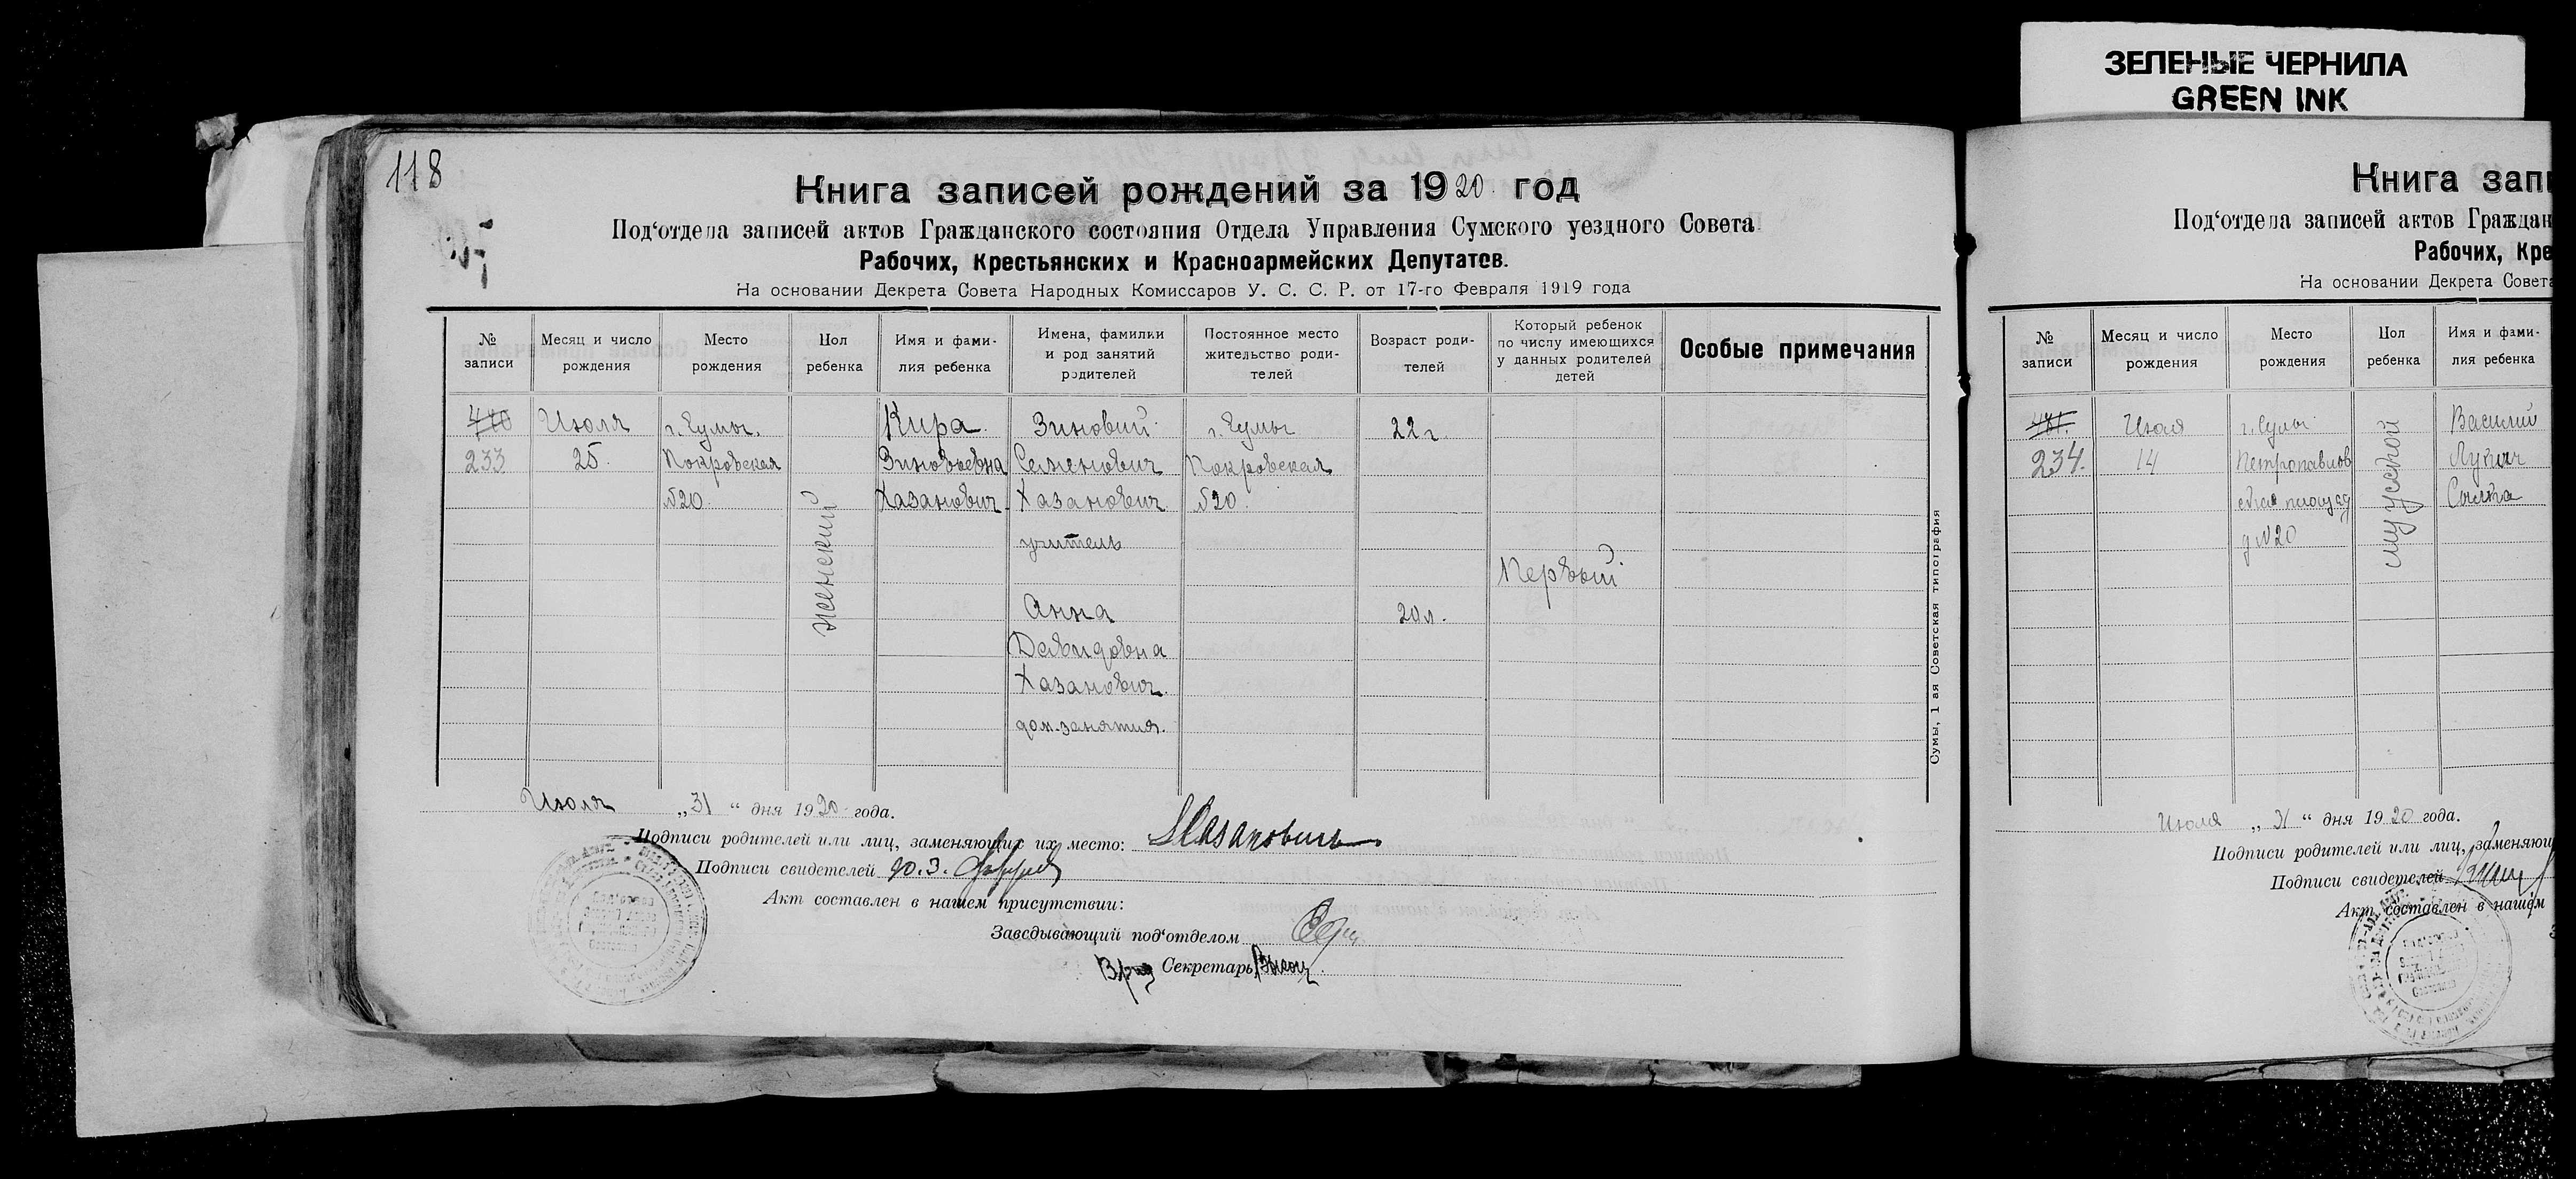 ЗЕЛЕНЫЕ ЧЕРНИЛА
GREEN INK
118
Книга записей рождений за 1920 год
Под‘отдела записей актов Гражданского состояния Отдела Управления Сумского уездного Совета
Рабочих, Крестьянских и Красноармейских Депутатов.
На основании Декрета Совета Народных Комиссаров У. С. С. Р. от 17-го Февраля 1919 года
№ записи
Месяц и число рождения
Место рождения
Пол ребенка
Имя и фамилия ребенка
Имена, фамилии и род занятий родителей
Постоянное место жительство родителей
Возраст родителей
Который ребенок по числу имеющихся у данных родителей детей
Особые примечания
233
Июля
25.
г. Сумы.
Покровская
№20.
женский
Кира
Зиновьевна
Хазанович
Зиновий
Семенович
Хазанович
учитель
Анна
Давидовна
Хазанович.
дом. занятия.
г. Сумы
Покровская
№20.
22 г.
20 л.
Первый
Сумы, 1 ая Советская типография
Июля „31“ дня 1920 года.
Подписи родителей или лиц, заменяющих их место: Хазанович
Подписи свидетелей
Акт составлен в нашем присутствии:
Заведывающий под‘отделом
Секретарь
Книга запи
Под‘отдела записей актов Граждан
Рабочих, Кре
На основании Декрета Совета
№ записи
Месяц и число рождения
Место рождения
Пол ребенка
Имя и фамилия ребенка
234.
Июля
14
г. Сумы
Петропавлов
д №20
мужской
Василий
Лукич
Июля „31“ дня 1920 года.
Подписи родителей или лиц, заменяющ
Подписи свидетелей
Акт составлен в нашем